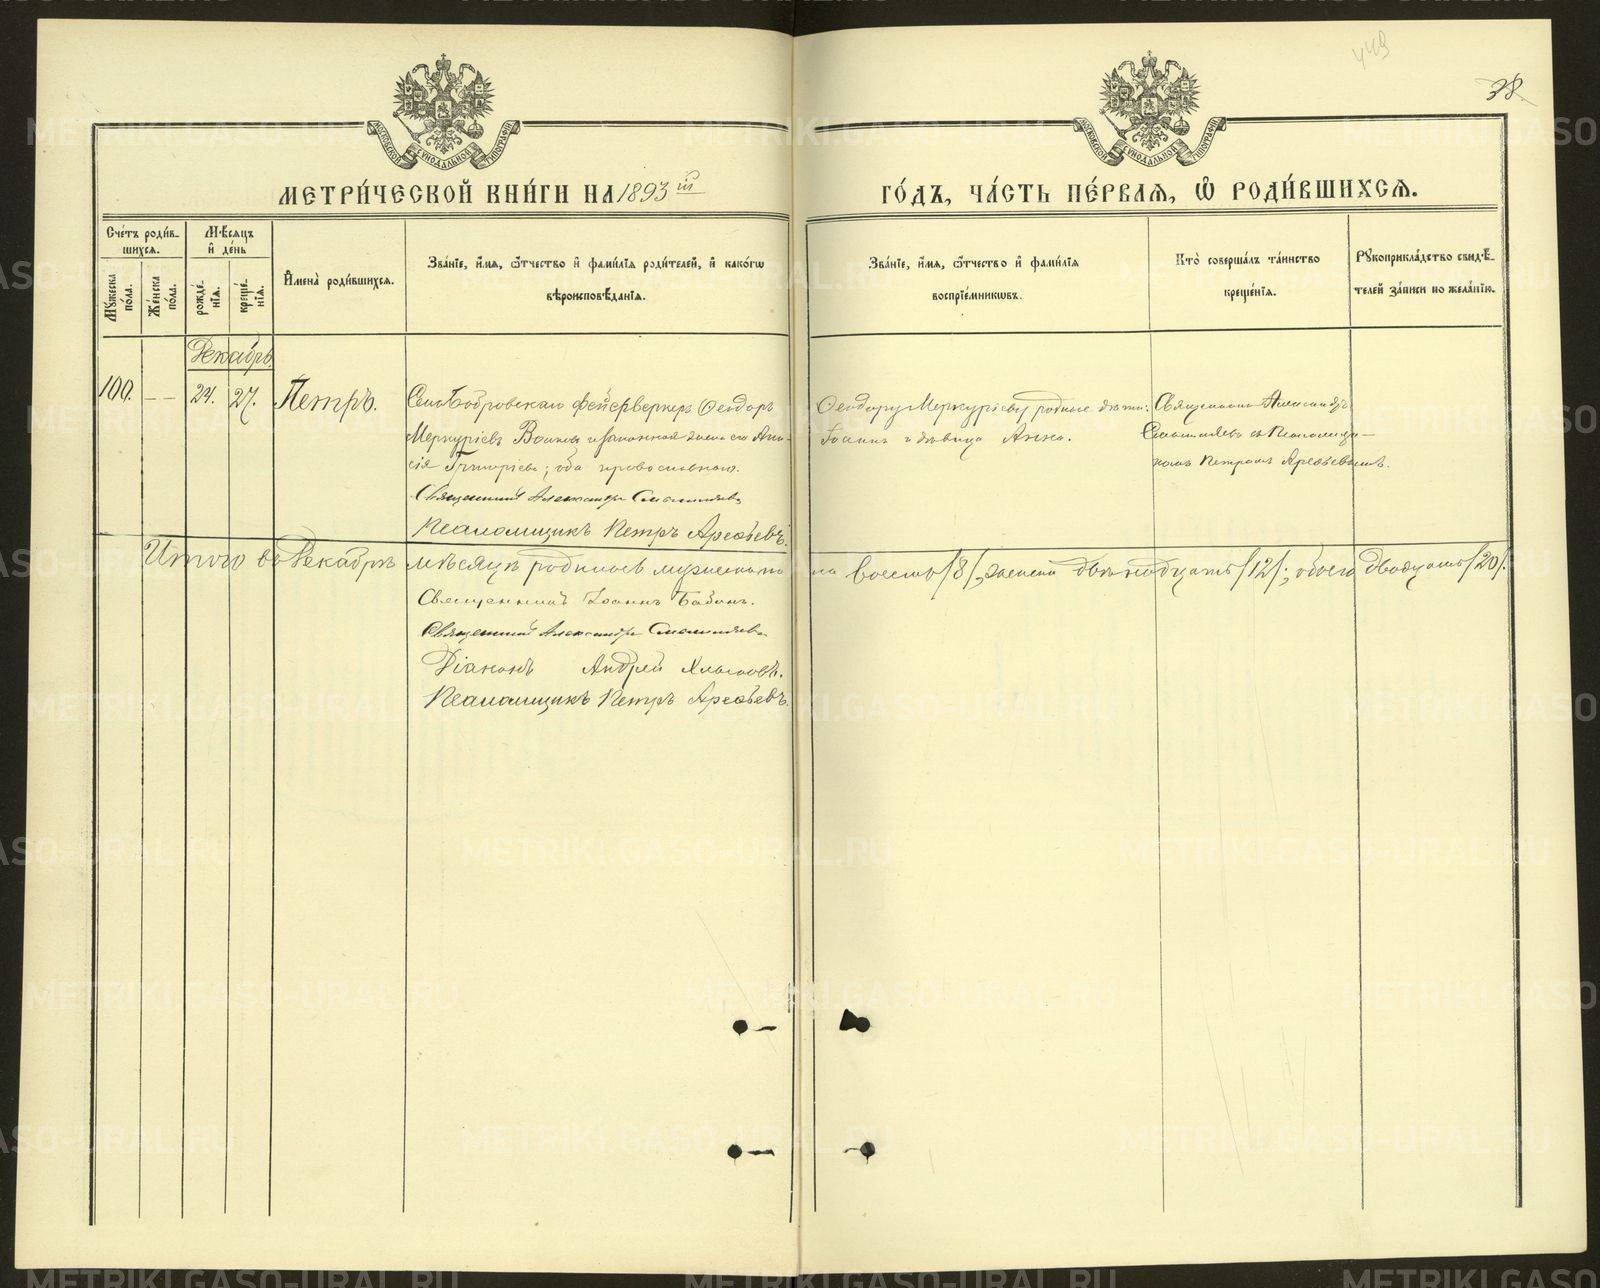 449
38.
МОСКОВСКОЙ СѴНОДАЛЬНОЙ ТИПОГРАФІИ
МОСКОВСКОЙ СѴНОДАЛЬНОЙ ТИПОГРАФІИ
МЕТРИ́ЧЕСКОЙ КНИ́ГИ НА 1893 ій ГО́ДЪ, ЧА́СТЬ ПЕ́РВАЯ, Ѡ҆ РОДИ́ВШИХСЯ.
Сче́тъ роди́в-
шихся.
Му́жеска по́ла.
Же́нска по́ла.
Мѣ́сяцъ и҆ де́нь
рожде́нія.
креще́нія.
И҆мена̀ роди́вшихся.
Зва́ніе, и҆́мя, ѻ҆́тчество и҆ фами́лія роди́телей, и҆ како́гѡ
вѣроисповѣ́данія.
Зва́ніе, и҆́мя, ѻ҆́тчество и҆ фами́лія
воспріе́мникѡвъ.
Кто̀ соверша́лъ та́инство
креще́нія.
Рукоприкла́дство свидѣ́-
телей за́писи по жела́нію.
Декабрь
100. — — 24. 27. Петръ.
Села Бобровскаго фейерверкеръ Ѳеодоръ
Меркуріевъ и законная жена его
Григоріева; оба православнаго.
Священникъ Александръ
Псаломщикъ Петръ Арефьевъ.
Ѳеодору Меркуріеву родные дѣти:
Іоаннъ и дѣвица Анна.
Священникъ Александръ
съ Псаломщи-
комъ Петромъ Арефьевымъ.
Итого въ Декабрѣ мѣсяцѣ родилось мужеска по-
ла восемь /8/, женска двѣнадцать /12/; обоего двадцать /20/.
Священникъ Іоаннъ
Священникъ Александръ
Діаконъ Андрей
Псаломщикъ Петръ Арефьевъ.
METRIKI.GASO-URAL.RU